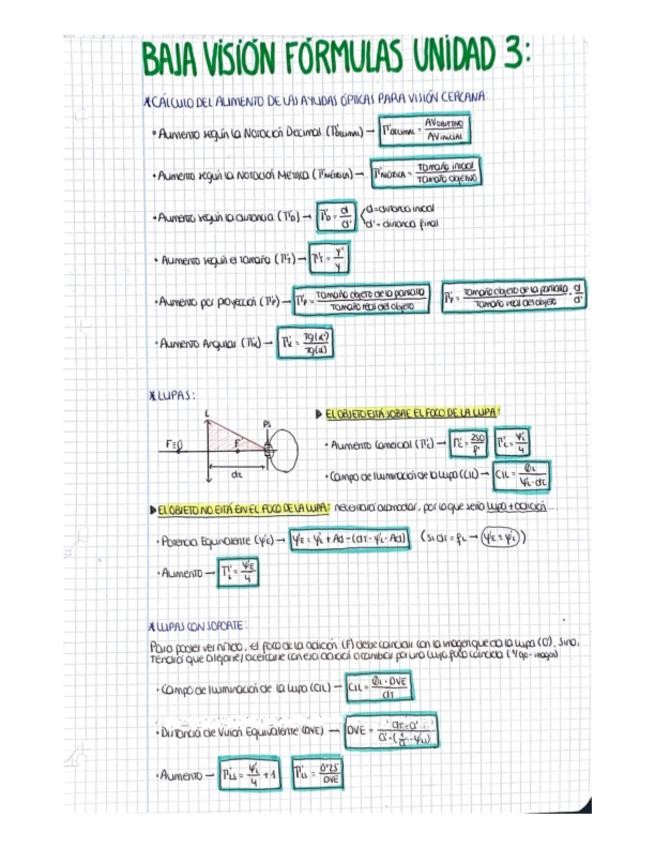 BAJA VISIÓN FÓRMULAS UNIDAD 3:
*CÁLCULO DEL AUMENTO DE LAS AYUDAS ÓPTICAS PARA VISIÓN CERCANA:
• Aumento según la Notación Decimal (Γ'DECIMAL) → Γ'DECIMAL = AVOBJETIVO / AVINICIAL
• Aumento según la Notación Métrica (Γ'MÉTRICA) → Γ'MÉTRICA = Tamaño inicial / Tamaño objetivo
• Aumento según la distancia (Γ'D) → Γ'D = d / d' d = distancia inicial
d' = distancia final
• Aumento según el tamaño (Γ'T) → Γ'T = y' / y
• Aumento por proyección (Γ'P) → Γ'P = Tamaño objeto de la pantalla / Tamaño real del objeto Γ'P = Tamaño objeto de la pantalla / Tamaño real del objeto · d / d'
• Aumento Angular → Tg(α') / Tg(α)
*LUPAS:
L PS
F≡O F' dL
▶ EL OBJETO ESTÁ SOBRE EL FOCO DE LA LUPA:
• Aumento Comercial → 250 / f' 4
• Campo de Iluminación de la Lupa (CIL) → CIL =
▶ EL OBJETO NO ESTÁ EN EL FOCO DE LA LUPA: necesitará acomodar, por lo que sería Lupa + adición...
• Potencia Equivalente (ΨE) → ΨE = ΨL + Ad - (dT · ΨL · Ad)
• Aumento → ΨE / 4
*LUPAS CON SOPORTE:
Para poder ver nítido, el foco de la adición (F) debe coincidir con la imagen que da la lupa (O'). Sino,
Tendrá que alejarse / acercarse con esa adición o cambiar por una cuyo foco coincida
• Campo de Iluminación de la Lupa (CIL) → CIL = ØL · DVE / dT
• Distancia de Visión Equivalente (DVE) → DVE =
• Aumento → Γ'LS = ΨL / 4 + 1 0'25 / DVE